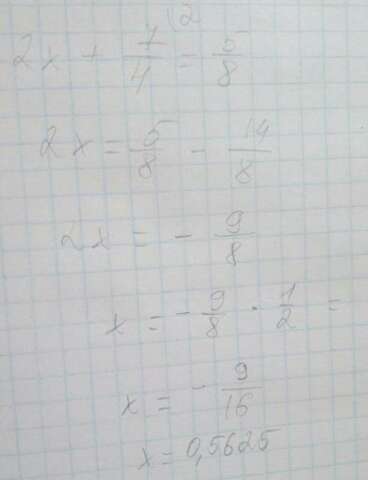 (2
2x + 7/4 = 5/8
2x = 5/8 - 14/8
2x = - 9/8
x = - 9/8 · 1/2 =
x = - 9/16
x = 0,5625